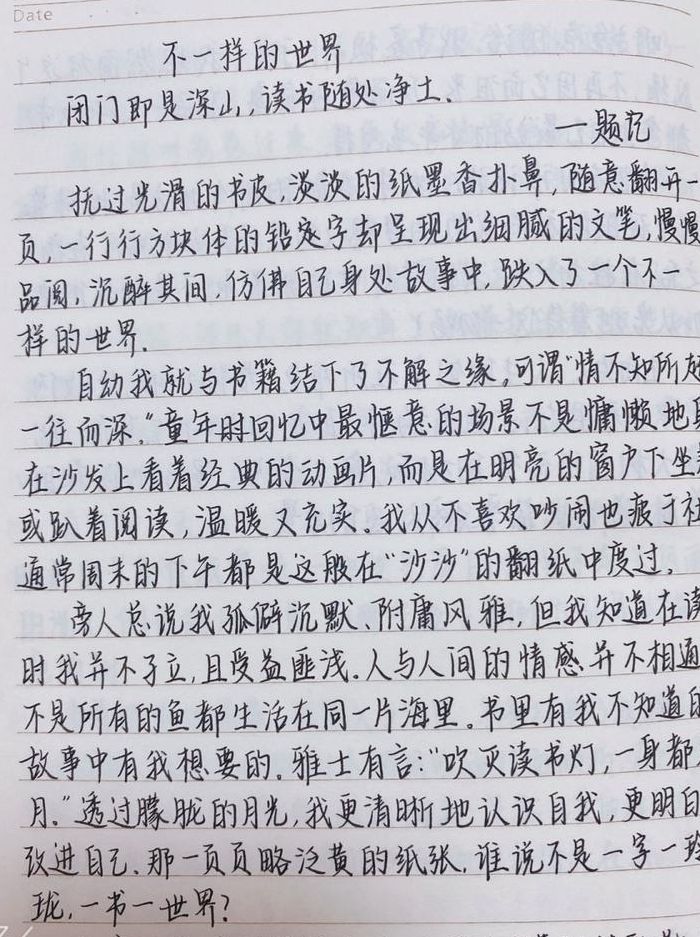 Date
不一样的世界
闭门即是深山,读书随处净土.
—题记
抚过光滑的书皮,淡淡的纸墨香扑鼻,随意翻开一
页,一行行方块体的铅字却呈现出细腻的文笔,慢慢
品阅,沉醉其间,仿佛自己身处故事中,跌入了一个不一
样的世界.
自幼我就与书籍结下了不解之缘,可谓"情不知所起
一往而深."童年时回忆中最惬意的场景不是慵懒地
在沙发上看着经典的动画片,而是在明亮的窗户下坐着
或趴着阅读,温暖又充实.我从不喜欢吵闹也疲于社
通常周末的下午都是这般在"沙沙"的翻纸中度过.
旁人总说我孤僻沉默、附庸风雅,但我知道在读
时我并不孑立,且受益匪浅.人与人间的情感并不相通
不是所有的鱼都生活在同一片海里.书里有我不知道的
故事中有我想要的.雅士有言:"吹灭读书灯,一身都
月."透过朦胧的月光,我更清晰地认识自我,更明白
改进自己.那一页页略泛黄的纸张,谁说不是一字一玲
珑,一书一世界?